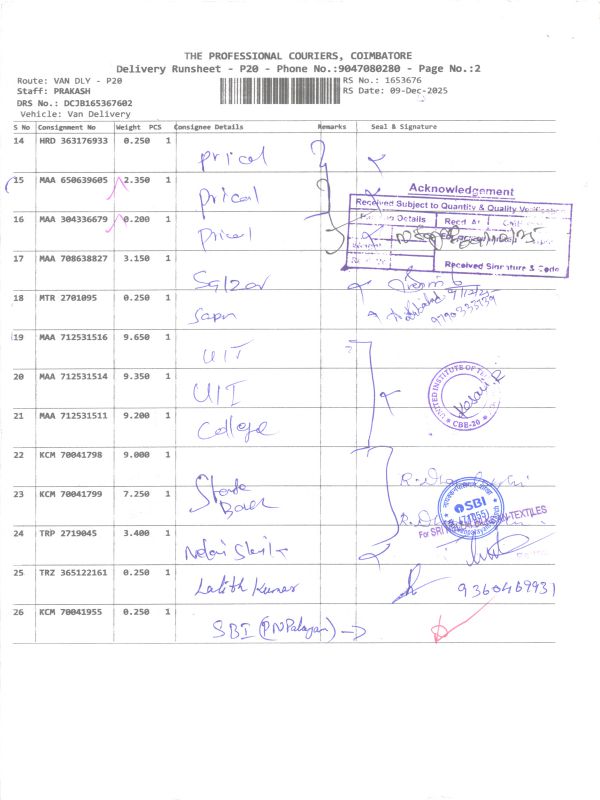 THE PROFESSIONAL COURIERS, COIMBATORE
Delivery Runsheet - P20 - Phone No.:9047080280 - Page No.:2
Route: VAN DLY - P20 RS No.: 1653676
Staff: PRAKASH RS Date: 09-Dec-2025
DRS No.: DCJB165367602
Vehicle: Van Delivery
S No Consignment No Weight PCS Consignee Details Remarks Seal & Signature
14 HRD 363176933 0.250 1 pricol
15 MAA 650639605 2.350 1 pricol
Acknowledgement
Received Subject to Quantity & Quality Verification
Details Recd At
16 MAA 304336679 0.200 1 Pricol
Received Signature & Code
17 MAA 708638827 3.150 1
18 MTR 2701095 0.250 1
9790333139
19 MAA 712531516 9.650 1 UIT
20 MAA 712531514 9.350 1 UIT
UNITED INSTITUTE OF
CBE-20
21 MAA 712531511 9.200 1 College
22 KCM 70041798 9.000 1
23 KCM 70041799 7.250 1 State Bank
SBI
(71055)
24 TRP 2719045 3.400 1
For SRI TEXTILES
25 TRZ 365122161 0.250 1 Lalith Kumar 9360469931
26 KCM 70041955 0.250 1 SBI (PN Palayam)